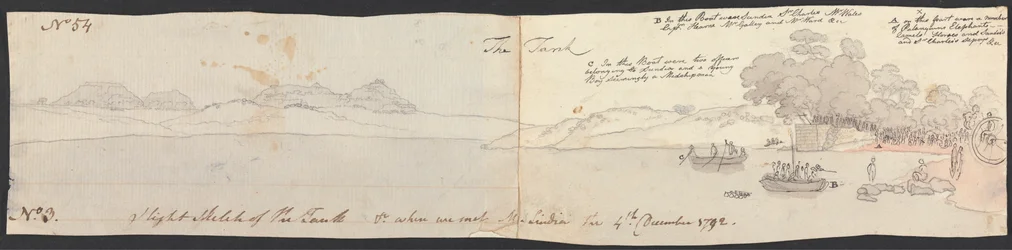 No 54
The Tank
B In this Boat were Sindia Sr Charles Mr Wales
Capt. Mr and Mr Ward &c
x
A in this part were a number
of Palanquins Elephants
Camels Horses and Sindia's
and Sr Charles's Sepoys &c
C In this Boat were two officers
belonging to Sindia and a Young
Boy seemingly a Midshipman
C
A
B
No 3.
Slight Sketch of the Tank &c when we met M. Sindia the 4th December 1792.